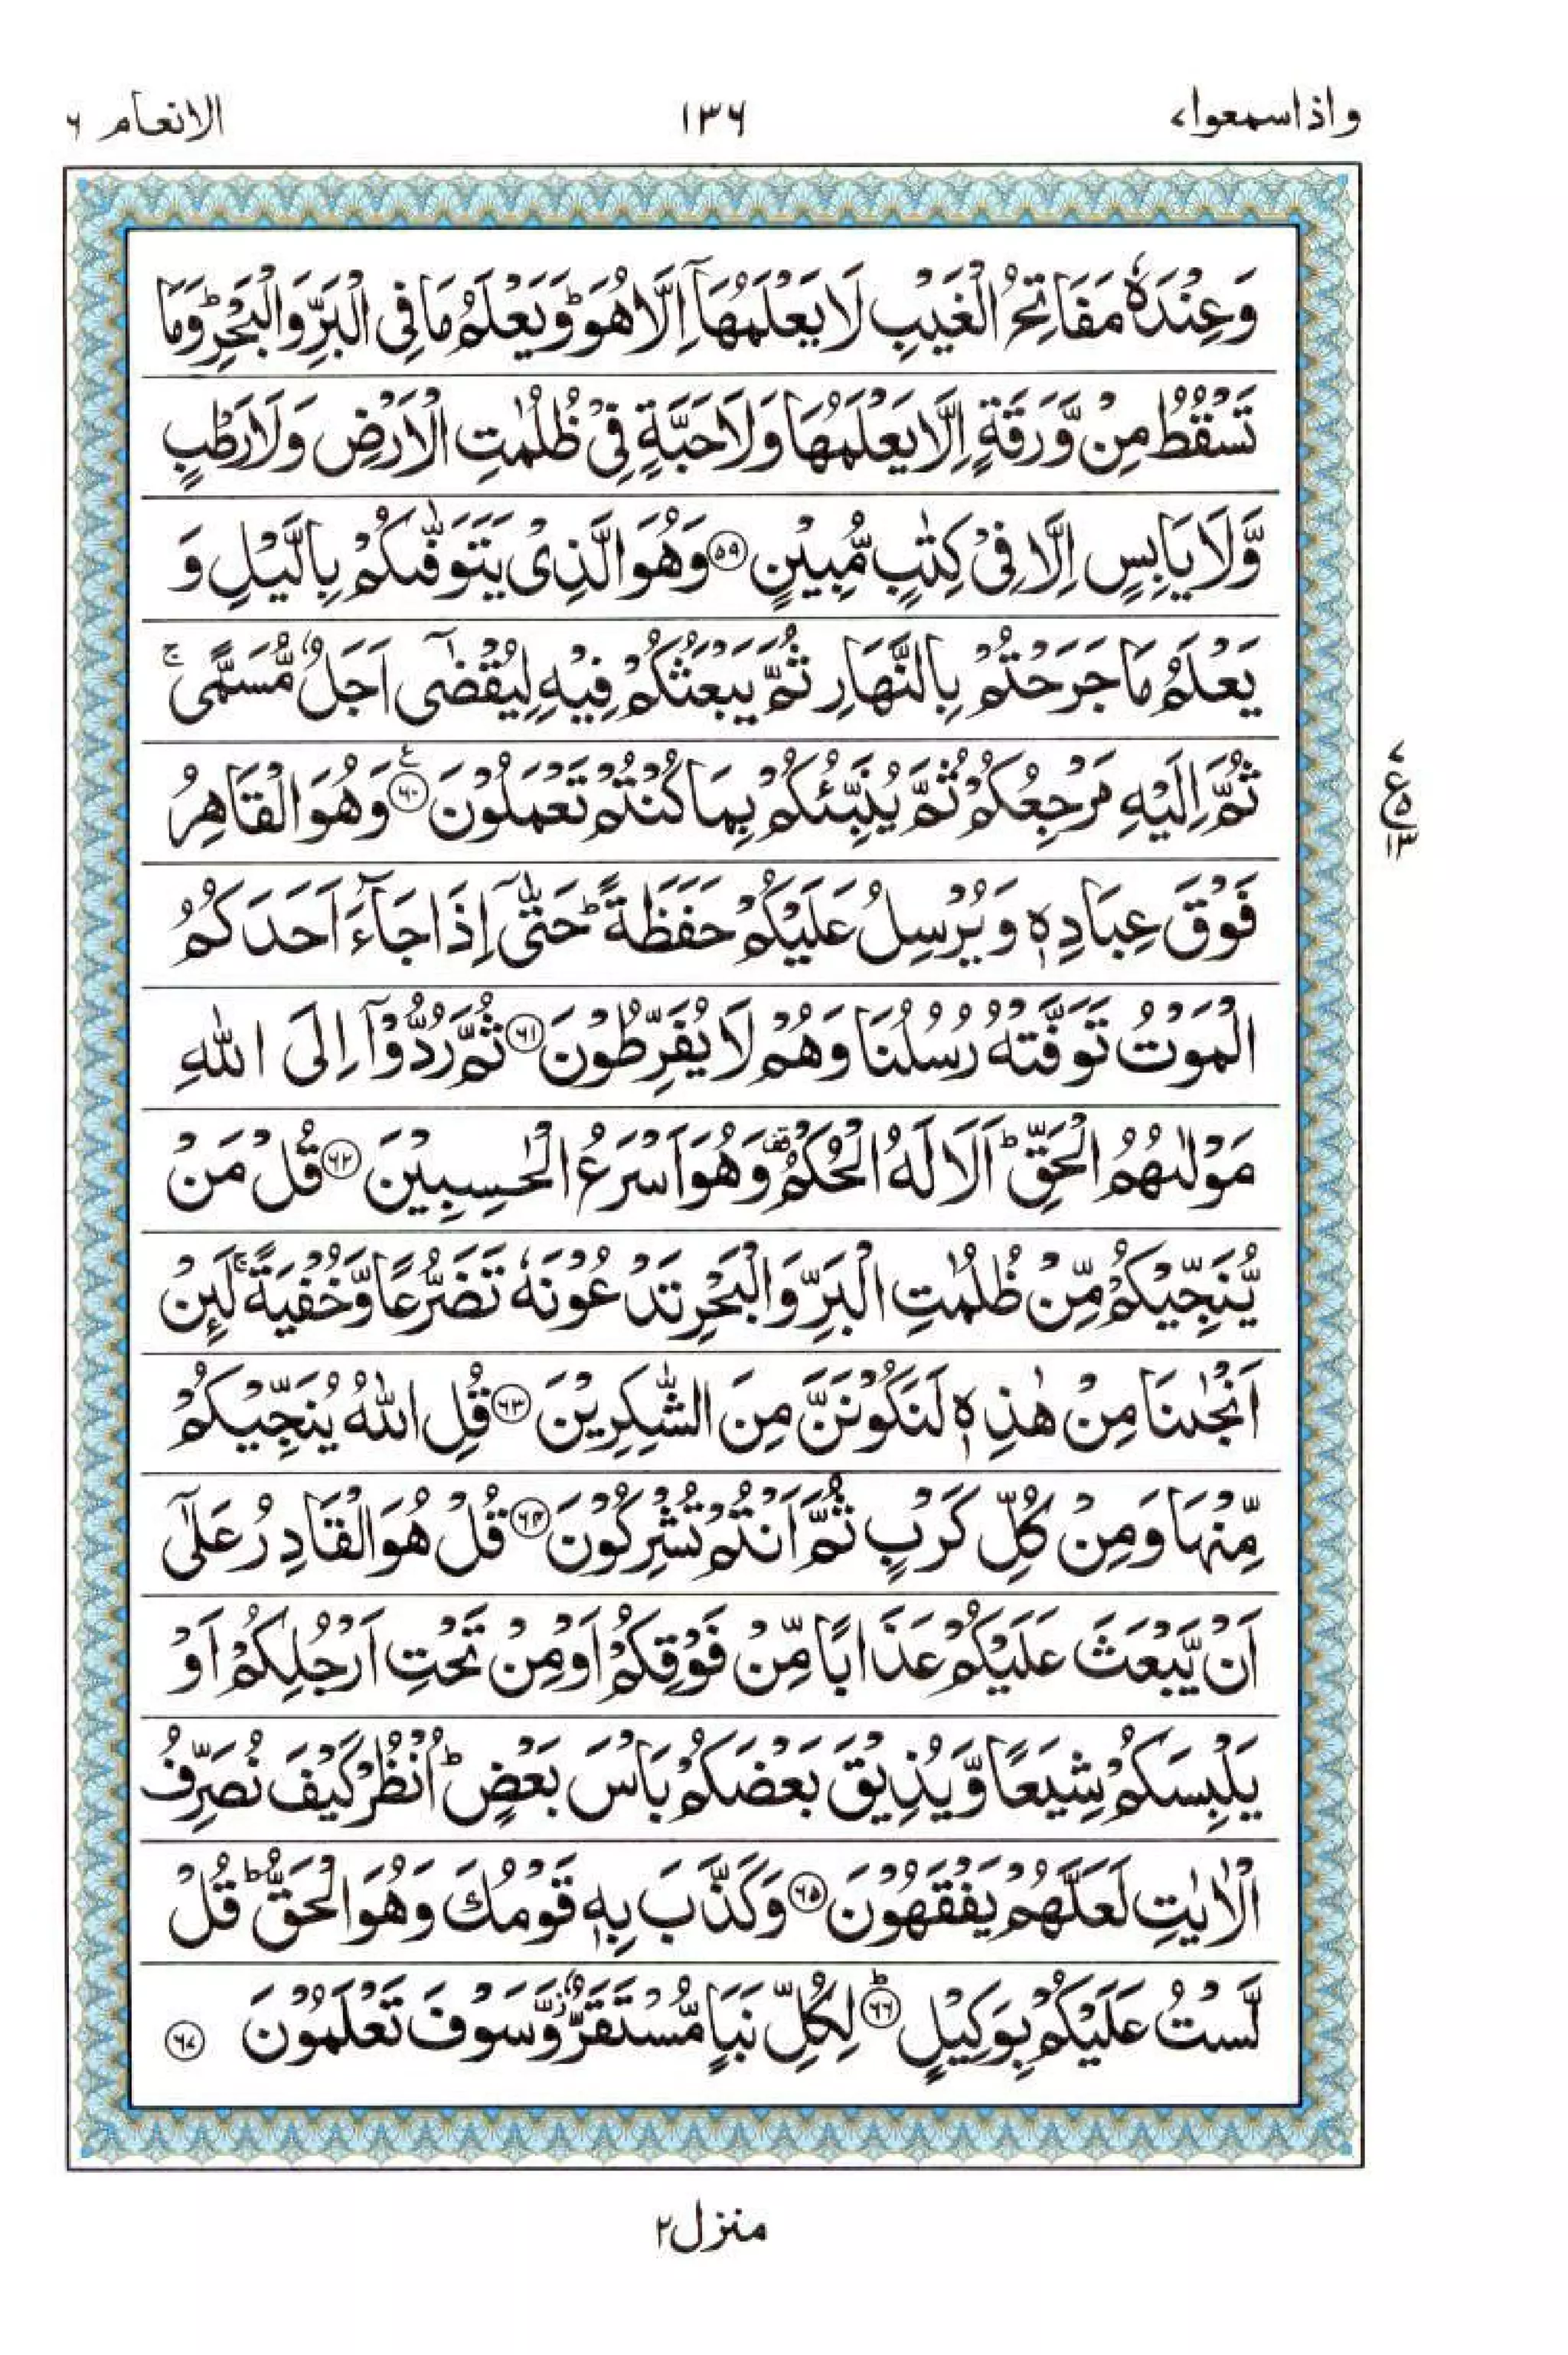 واذاسمعوا٧ ١٣٦ الانعام ٦
وَعِنْدَهٗ مَفَاتِحُ الْغَيْبِ لَا يَعْلَمُهَاۤ اِلَّا هُوَ ؕ وَيَعْلَمُ مَا فِى الْبَرِّ وَالْبَحْرِ ؕ وَمَا
تَسْقُطُ مِنْ وَّرَقَةٍ اِلَّا يَعْلَمُهَا وَلَا حَبَّةٍ فِىْ ظُلُمٰتِ الْاَرْضِ وَلَا رَطْبٍ
وَّلَا يَابِسٍ اِلَّا فِىْ كِتٰبٍ مُّبِيْنٍ ﴿۵۹﴾ وَهُوَ الَّذِىْ يَتَوَفّٰٮكُمْ بِالَّيْلِ وَ
يَعْلَمُ مَا جَرَحْتُمْ بِالنَّهَارِ ثُمَّ يَبْعَثُكُمْ فِيْهِ لِيُقْضٰٓى اَجَلٌ مُّسَمًّى ۚ
ثُمَّ اِلَيْهِ مَرْجِعُكُمْ ثُمَّ يُنَبِّئُكُمْ بِمَا كُنْتُمْ تَعْمَلُوْنَ ﴿۶۰﴾ وَهُوَ الْقَاهِرُ
فَوْقَ عِبَادِهٖ وَيُرْسِلُ عَلَيْكُمْ حَفَظَةً ؕ حَتّٰٓى اِذَا جَآءَ اَحَدَكُمُ
الْمَوْتُ تَوَفَّتْهُ رُسُلُنَا وَهُمْ لَا يُفَرِّطُوْنَ ﴿۶۱﴾ ثُمَّ رُدُّوْۤا اِلَى اللّٰهِ
مَوْلٰٮهُمُ الْحَقِّ ؕ اَلَا لَهُ الْحُكْمُ ۟ وَهُوَ اَسْرَعُ الْحٰسِبِيْنَ ﴿۶۲﴾ قُلْ مَنْ
يُّنَجِّيْكُمْ مِّنْ ظُلُمٰتِ الْبَرِّ وَالْبَحْرِ تَدْعُوْنَهٗ تَضَرُّعًا وَّخُفْيَةً ۚ لَٮِٕنْ
اَنْجٰٮنَا مِنْ هٰذِهٖ لَنَكُوْنَنَّ مِنَ الشّٰكِرِيْنَ ﴿۶۳﴾ قُلِ اللّٰهُ يُنَجِّيْكُمْ
مِّنْهَا وَمِنْ كُلِّ كَرْبٍ ثُمَّ اَنْتُمْ تُشْرِكُوْنَ ﴿۶۴﴾ قُلْ هُوَ الْقَادِرُ عَلٰٓى
اَنْ يَّبْعَثَ عَلَيْكُمْ عَذَابًا مِّنْ فَوْقِكُمْ اَوْ مِنْ تَحْتِ اَرْجُلِكُمْ اَوْ
يَلْبِسَكُمْ شِيَعًا وَّيُذِيْقَ بَعْضَكُمْ بَاْسَ بَعْضٍ ؕ اُنْظُرْ كَيْفَ نُصَرِّفُ
الْاٰيٰتِ لَعَلَّهُمْ يَفْقَهُوْنَ ﴿۶۵﴾ وَكَذَّبَ بِهٖ قَوْمُكَ وَهُوَ الْحَقُّ ؕ قُلْ
لَّسْتُ عَلَيْكُمْ بِوَكِيْلٍ ؕ ﴿۶۶﴾ لِكُلِّ نَبَاٍ مُّسْتَقَرٌّ ۫ وَّسَوْفَ تَعْلَمُوْنَ ﴿۶۷﴾
٧
ع ۵
١٣
منزل٢